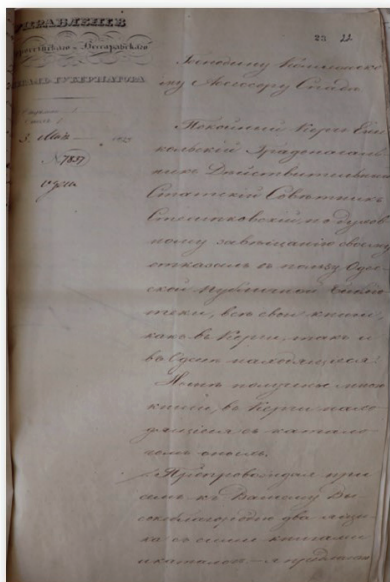 УПРАВЛЕНІЕ
Новороссійскаго и Бессарабскаго
ГЕНЕРАЛЪ ГУБЕРНАТОРА
23 22.
Господину Коллежско-
му Ассесору Спада
3. 
№ 7857
Одесса
Покойный Керчь Ени-
кольскій Градоначаль-
никъ Действительный
Статскій Советникъ
Стемпковскій, по духов-
ному завещанію своему
отказалъ въ пользу Одес-
ской Публичной Библіо-
теки, все свои книги,
какъ въ Керчи, такъ и
въ Одессе находящіеся.
Ныне получены мною
книги, въ Керчи нахо-
дящіеся съ катало-
гомъ онымъ.
Препровождая при
семъ къ Вашему Вы-
сокоблагородію два ящи-
ка съ сими книгами
и каталогъ, я предлагаю